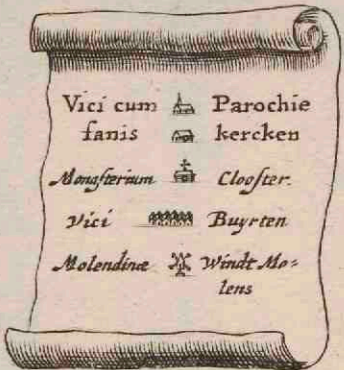 Vici cum Parochie
fanis kercken
Monasterium Clooster.
Vici Buyrten
Molendinæ Windt Mo=
lens